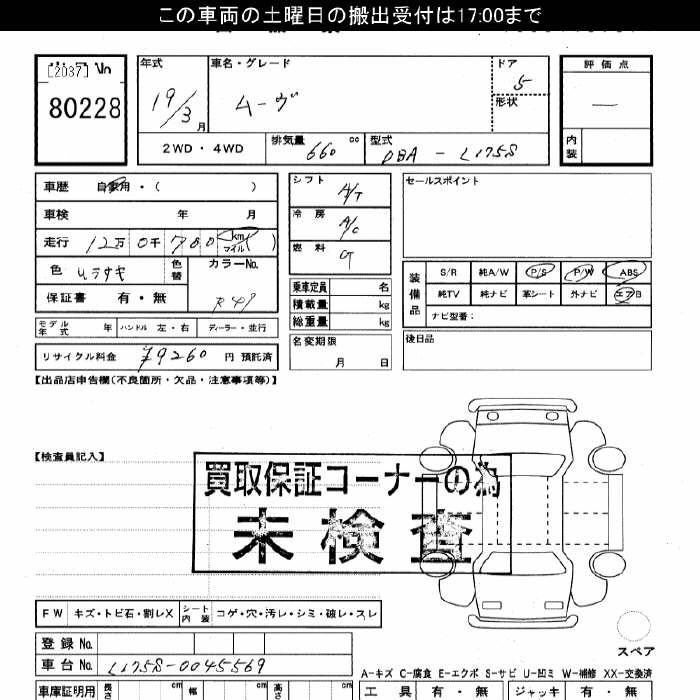 この車両の土曜日の搬出受付は17:00まで
[2037] No
80228
年式
19/3 月
車名・グレード
ムーヴ
ドア
5
形状
評価点
—
内装
2WD・4WD
排気量 660 cc
型式 DBA-L175S
車歴 自家用・( )
車検 年 月
走行 12万0千700 km マイル ( )
色 ムラサキ
色替
カラーNo.
保証書 有・無
モデル年式 年
ハンドル 左・右
ディーラー・並行
リサイクル料金 ¥9260 円 預託済
シフト A/T
冷房 A/C
燃料 G
乗車定員 名
積載量 kg
総重量 kg
名変期限
月 日
セールスポイント
装備品
S/R 純A/W P/S P/W ABS
純TV 純ナビ 革シート 外ナビ エアB
ナビ型番:
後日品
【出品店申告欄(不良箇所・欠品・注意事項等)】
【検査員記入】
買取保証コーナーの為
未検査
FW キズ・トビ石・割レX
シート内装 コゲ・穴・汚レ・シミ・破レ・スレ
登録No.
車台No. L175S-0045569
スペア
A-キズ C-腐食 E-エクボ S-サビ U-凹ミ W-補修 XX-交換済
車庫証明用 長さ cm 幅 cm 高さ cm
工具 有・無 ジャッキ 有・無